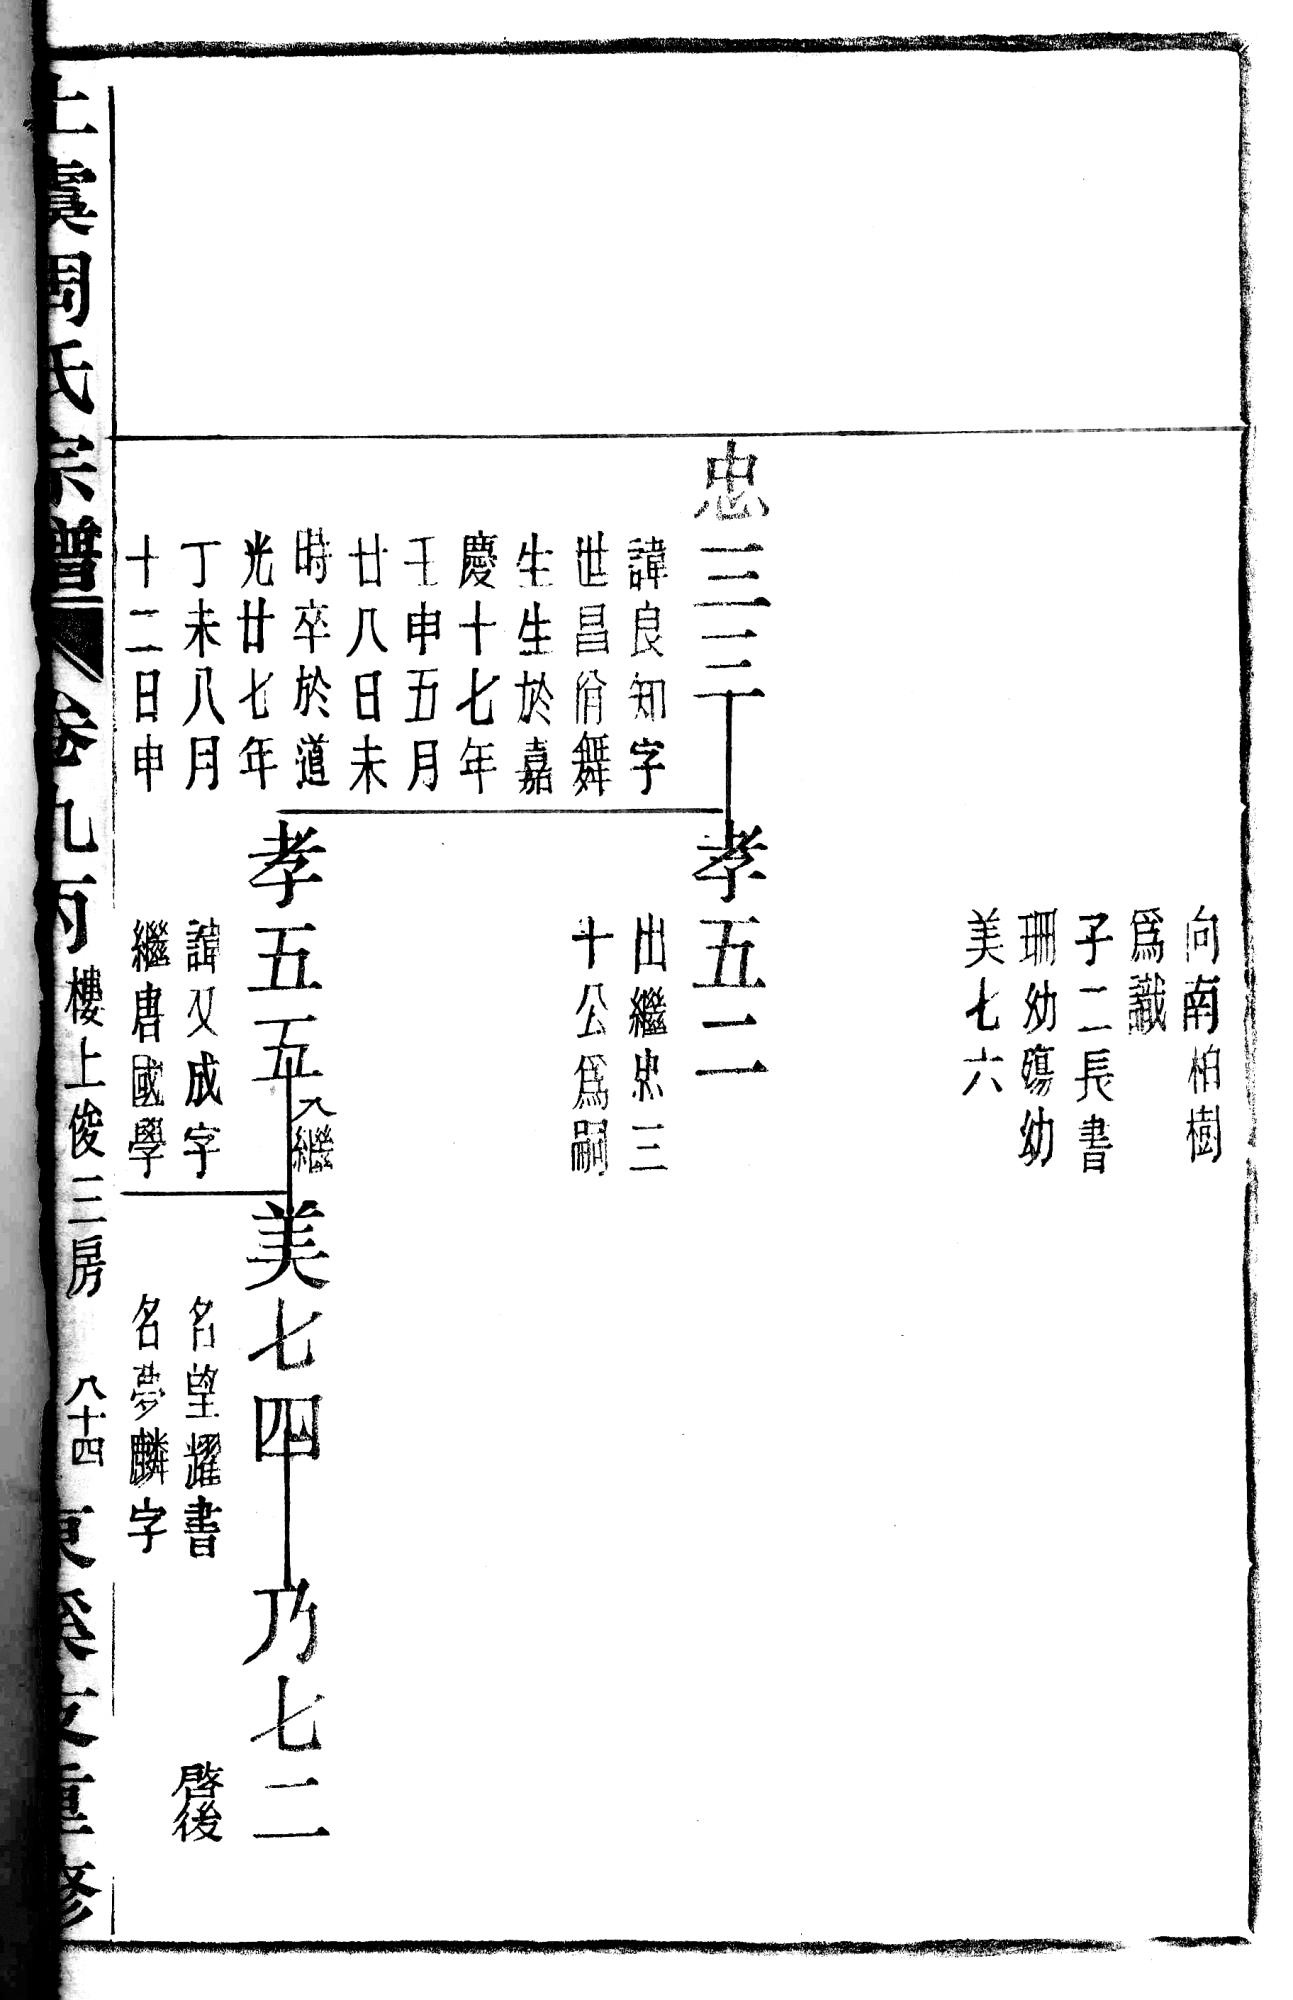 向南柏樹
爲識
子二長書
珊幼殤幼
美七六
忠三三
諱良知字
世昌佾舞
生生於嘉
慶十七年
壬申五月
廿八日未
時卒於道
光廿七年
丁未八月
十二日申
孝五二
出繼忠三
十公爲嗣
孝五五
入繼
諱又成字
繼唐國學
美七四
名望耀書
名夢麟字
乃七二
啓後
上虞周氏宗譜
卷九丙
樓上俊三房
八十四
東溪支重修